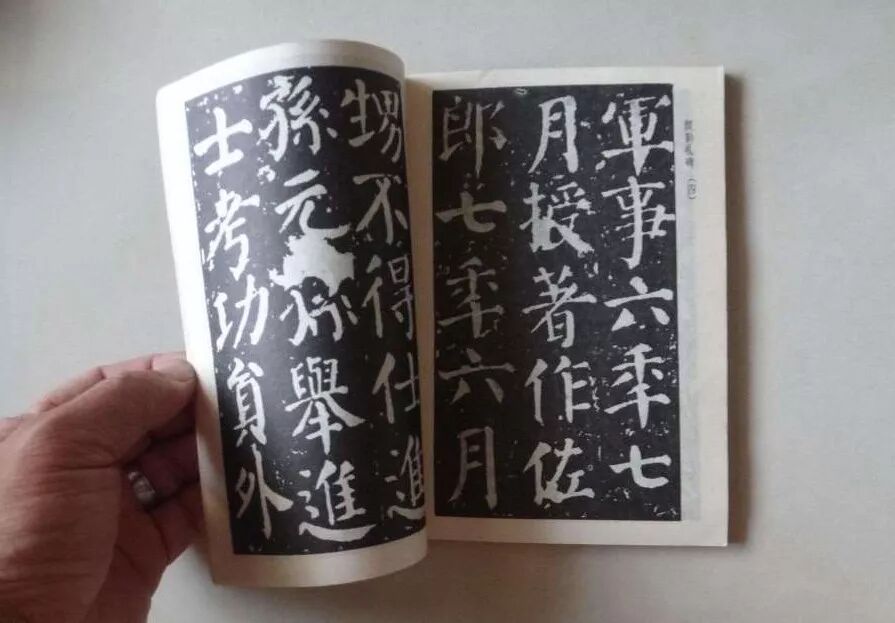 顏勤礼碑（四）
軍事六年七
月授著作佐
郎七年六月
甥不得仕進
孫元孫舉進
士考功員外